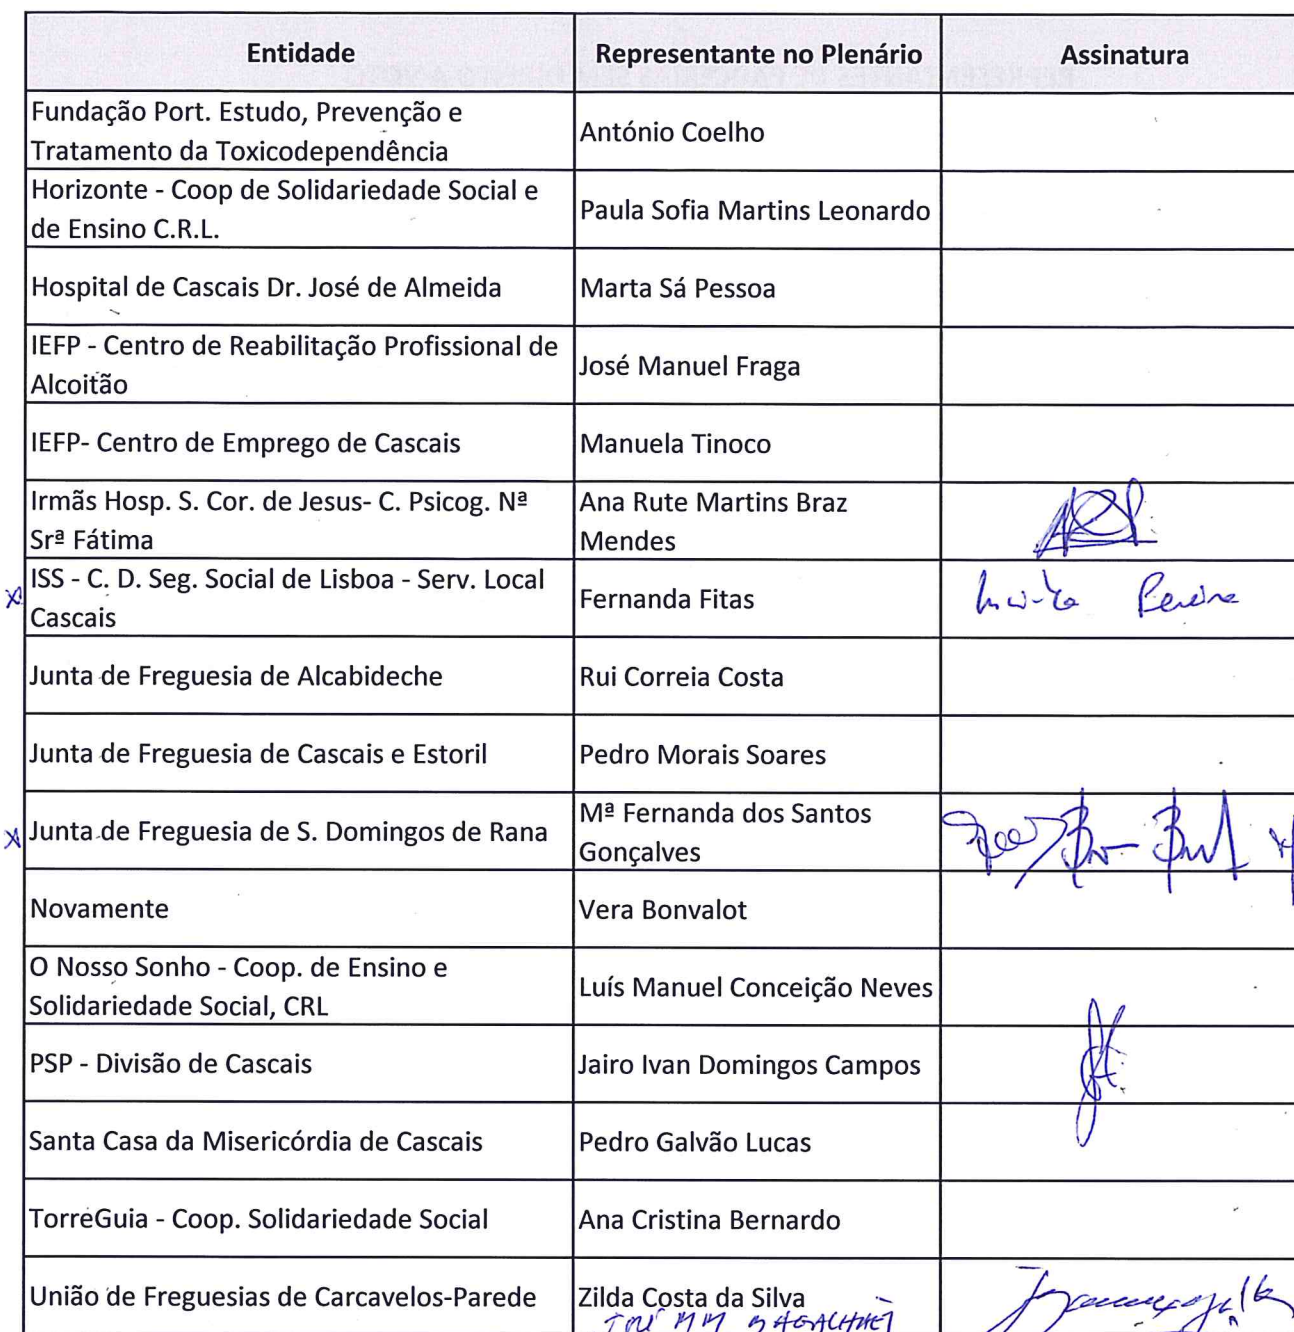 Entidade
Representante no Plenário
Assinatura
Fundação Port. Estudo, Prevenção e
Tratamento da Toxicodependência
António Coelho
Horizonte - Coop de Solidariedade Social e
de Ensino C.R.L.
Paula Sofia Martins Leonardo
Hospital de Cascais Dr. José de Almeida
Marta Sá Pessoa
IEFP - Centro de Reabilitação Profissional de
Alcoitão
José Manuel Fraga
IEFP- Centro de Emprego de Cascais
Manuela Tinoco
Irmãs Hosp. S. Cor. de Jesus- C. Psicog. Nª
Srª Fátima
Ana Rute Martins Braz
Mendes
x
ISS - C. D. Seg. Social de Lisboa - Serv. Local
Cascais
Fernanda Fitas
Pereira
Junta de Freguesia de Alcabideche
Rui Correia Costa
Junta de Freguesia de Cascais e Estoril
Pedro Morais Soares
x
Junta de Freguesia de S. Domingos de Rana
Mª Fernanda dos Santos
Gonçalves
Novamente
Vera Bonvalot
O Nosso Sonho - Coop. de Ensino e
Solidariedade Social, CRL
Luís Manuel Conceição Neves
PSP - Divisão de Cascais
Jairo Ivan Domingos Campos
Santa Casa da Misericórdia de Cascais
Pedro Galvão Lucas
TorreGuia - Coop. Solidariedade Social
Ana Cristina Bernardo
União de Freguesias de Carcavelos-Parede
Zilda Costa da Silva